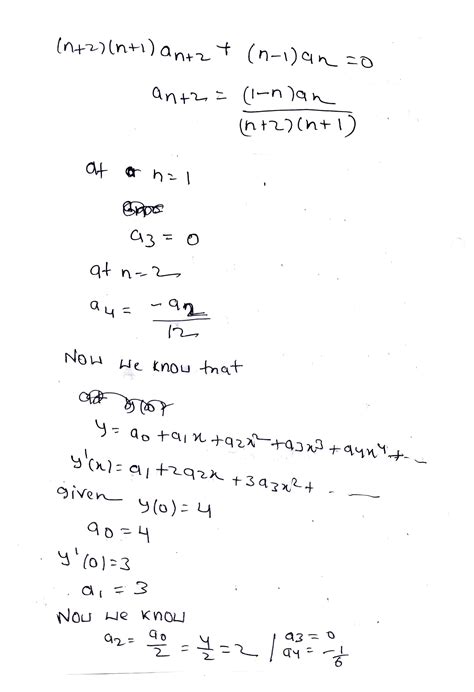 (n+2)(n+1) an+2 + (n-1)an = 0
an+2 = (1-n)an / (n+2)(n+1)
at n=1
a3 = 0
at n=2
a4 = -a2 / 12
Now we know that
y = a0 + a1x + a2x² + a3x³ + a4x⁴ + - -
y'(x) = a1 + 2a2x + 3a3x² + - - —
given y(0) = 4
a0 = 4
y'(0) = 3
a1 = 3
Now we know
a2 = a0/2 = 4/2 = 2 | a3 = 0
a4 = -1/6